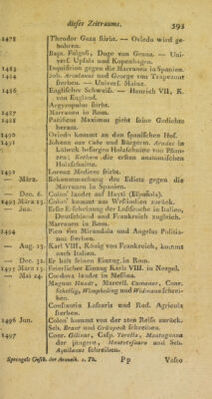 dieses Zeitraums. 593
1478 Theodor Gaza stirbt. — Oviedo wird ge-
bohren.
Baja. Folgoß, Doge von Genua. — Uni-
vers. Upsala und Kopenhagen.
1483 Inquisition gegen die Marranen in Spanien.
1484 Joh. Acciaiuoli und George von Trapezunt
sterben. — Univers. Mainz.
1486 Englischer Schweiß. — Heinrich VII, K.
von England.
Argyropulus stirbt.
1487 Marranen in Rom.
Pacificus Maximus giebt seine Gedichte
heraus.
1490 Oviedo kommt an den spanischen Hof.
1491 Johann von Cube und Bürgerm. Arndes in
Lübeck besorgen Holzschnitte von Pflan-
zen; Ketham die ersten anatomischen
Holzschnitte.
1492 Lorenz Medicis stirbt.
— März. Bekanntmachung des Edicts gegen die
Marranen in Spanien.
— Dec. 6. Colon' landet auf Hayti (Española).
1493 März 15. Colon' kommt aus Westindien zurück.
— Jun. Erste Erscheinung der Lustseuche in Italien,
Deutschland und Frankreich zugleich.
Marranen in Rom.
1494 Pico von Mirandola und Angelus Politia-
nus sterben.
— Aug. 23. Karl VIII, König von Frankreich, kommt
nach Italien.
— Dec. 31. Er hält seinen Einzug in Rom.
1495 März 13. Feierlicher Einzug Karls VIII. in Neapel.
— Mai 24. Cordova landet in Messina.
Magnus Hundt, Marcell. Cumanus, Conr.
Schellig, Wimpheling und Widmann schrei-
ben.
Conslantin Laskaris und Rud. Agricola
sterben.
1496 Jun. Colon' kommt von der 2ten Reise zurück.
Seb. Brant und Grünpeck schreiben.
1497 Conr. Gilinus, Casp. Torella, Montagnana
der jüngere, Montetesauro und Seb.
Aquilanus schreiben.
Sprengels Gesch. der Arzneik. 2. Th. Pp Vasco